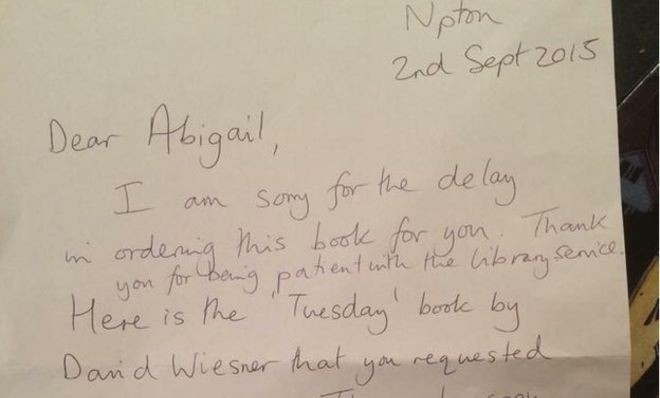 Npton
2nd Sept 2015
Dear Abigail,
I am sorry for the delay
in ordering this book for you. Thank
you for being patient with the library service.
Here is the 'Tuesday' book by
David Wiesner that you requested